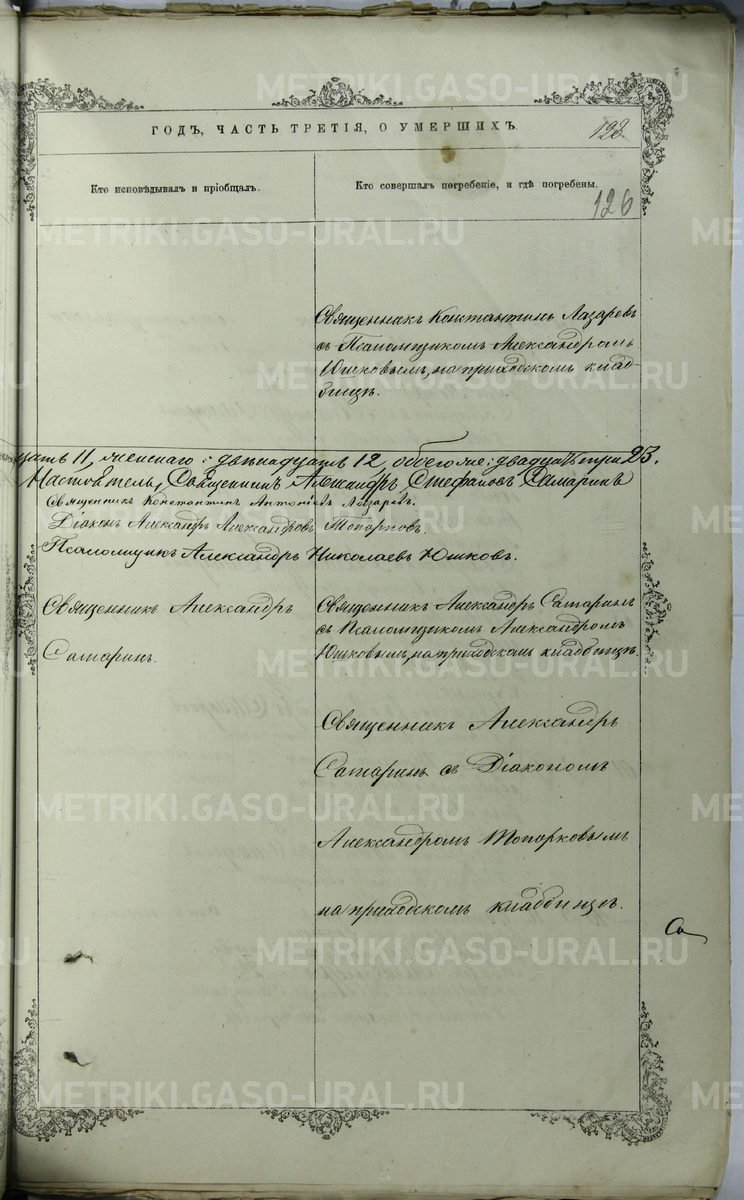 ГОДЪ, ЧАСТЬ ТРЕТІЯ, О УМЕРШИХЪ.
128.
Кто исповѣдывалъ и пріобщалъ.
Кто совершалъ погребеніе, и гдѣ погребены.
126
Священникъ Константинъ Лазаревъ
съ Псаломщикомъ Александромъ
Юшковымъ, на приходскомъ клад-
бищѣ.
цать 11, женскаго: двѣнадцать 12, обоего же: двадцать три 23.
Настоятель, Священникъ Александръ Стефановъ Самаринъ
Священникъ Константинъ Антоніевъ Лазаревъ.
Діаконъ Александръ Александровъ Топорковъ.
Псаломщикъ Александръ Николаевъ Юшковъ.
Священникъ Александръ
Самаринъ.
Священникъ Александръ Самаринъ
съ Псаломщикомъ Александромъ
Юшковымъ, на приходскомъ кладбищѣ.
Священникъ Александръ
Самаринъ съ Діакономъ
Александромъ Топорковымъ
на приходскомъ кладбищѣ.
Са
METRIKI.GASO-URAL.RU